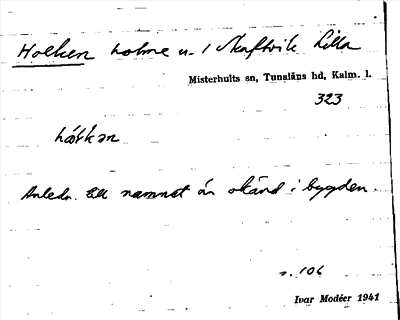 Holken holme u. 1 Skaftvik Lilla
Misterhults sn, Tunaläns hd, Kalm. l.
323
Anledn. till namnet är okänd i bygden.
s. 106
Ivar Modéer 1941